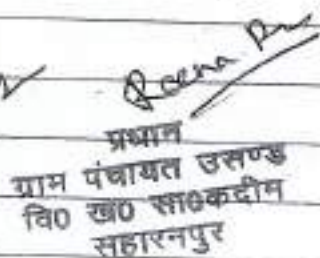 Reena
प्रधान
ग्राम पंचायत उसण्ड
वि0 ख0 सा0कदीम
सहारनपुर